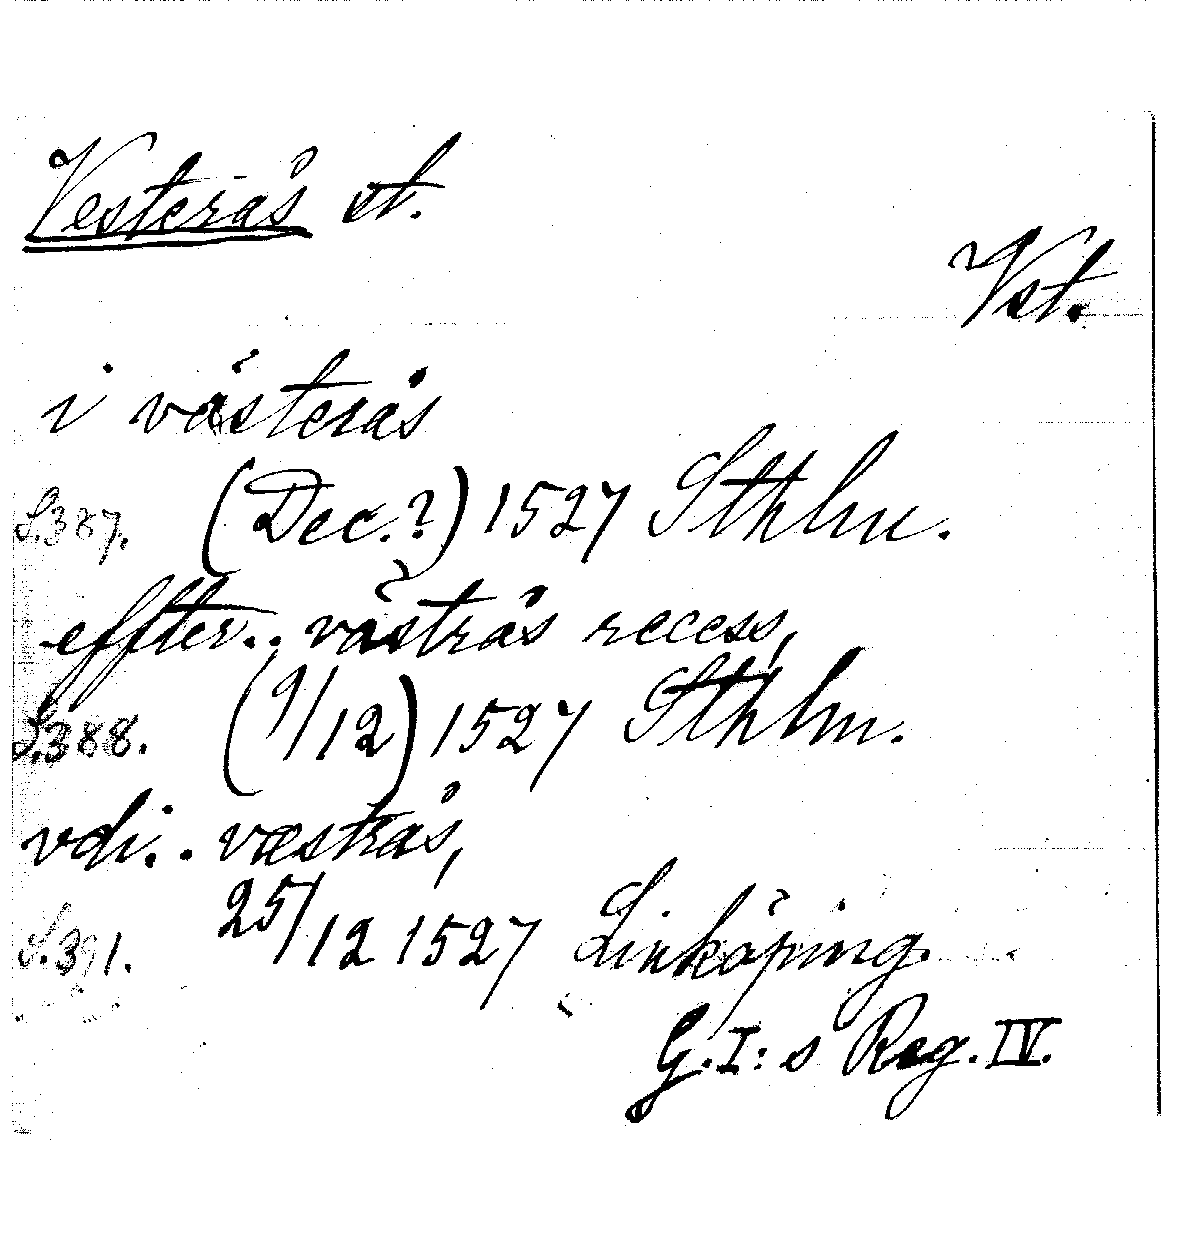 Vesterås st.
Vst.
i västerås
S.387. (Dec.?) 1527 Sthlm.
effter.. västrås recess,
S.388. (9/12) 1527 Sthlm.
vdi.. væstrås,
S.391. 25/12 1527 Linköping
G.I:s Reg. IV.